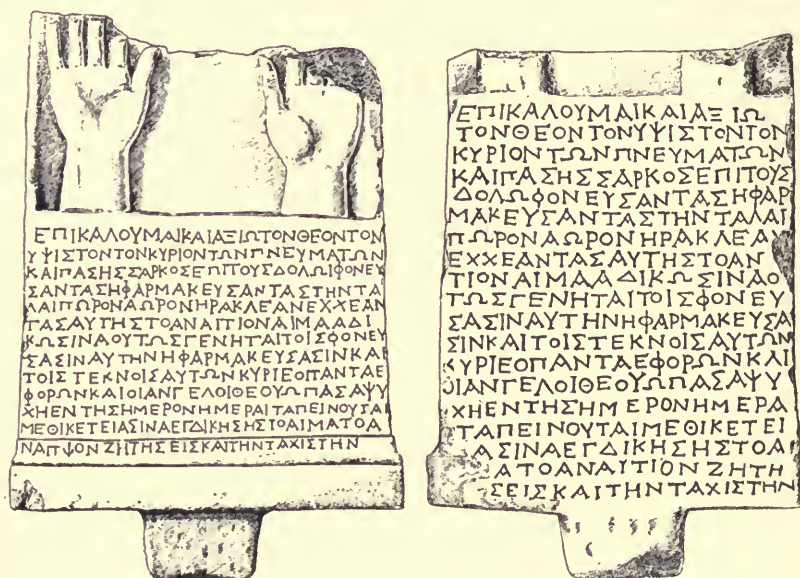 ΕΠΙΚΑΛΟΥΜΑΙΚΑΙΑΞΙΩΤΟΝΘΕΟΝΤΟΝ
ΥΨΙΣΤΟΝΤΟΝΚΥΡΙΟΝΤΩΝΠΝΕΥΜΑΤΩΝ
ΚΑΙΠΑΣΗΣΣΑΡΚΟΣΕΠΙΤΟΥΣΔΟΛΩΙΦΟΝΕΥ
ΣΑΝΤΑΣΗΦΑΡΜΑΚΕΥΣΑΝΤΑΣΤΗΝΤΑ
ΛΑΙΠΩΡΟΝΑΩΡΟΝΗΡΑΚΛΕΑΝΕΧΧΕΑΝ
ΤΑΣΑΥΤΗΣΤΟΑΝΑΙΤΙΟΝΑΙΜΑΑΔΙ
ΚΩΣΙΝΑΟΥΤΩΣΓΕΝΗΤΑΙΤΟΙΣΦΟΝΕΥ
ΣΑΣΙΝΑΥΤΗΝΗΦΑΡΜΑΚΕΥΣΑΣΙΝΚΑΙ
ΤΟΙΣΤΕΚΝΟΙΣΑΥΤΩΝΚΥΡΙΕΟΠΑΝΤΑΕ
ΦΟΡΩΝΚΑΙΟΙΑΝΓΕΛΟΙΘΕΟΥΩΠΑΣΑΨΥ
ΧΗΕΝΤΗΣΗΜΕΡΟΝΗΜΕΡΑΙΤΑΠΕΙΝΟΥΤΑΙ
ΜΕΘΙΚΕΤΕΙΑΣΙΝΑΕΓΔΙΚΗΣΗΣΤΟΑΙΜΑΤΟΑ
ΖΗΤΗΣΕΙΣΚΑΙΤΗΝΤΑΧΙΣΤΗΝ
ΕΠΙΚΑΛΟΥΜΑΙΚΑΙΑΞΙΩ
ΤΟΝΘΕΟΝΤΟΝΥΨΙΣΤΟΝΤΟΝ
ΚΥΡΙΟΝΤΩΝΠΝΕΥΜΑΤΩΝ
ΚΑΙΠΑΣΗΣΣΑΡΚΟΣΕΠΙΤΟΥΣ
ΔΟΛΩΦΟΝΕΥΣΑΝΤΑΣΗΦΑΡ
ΜΑΚΕΥΣΑΝΤΑΣΤΗΝΤΑΛΑΙ
ΠΩΡΟΝΑΩΡΟΝΗΡΑΚΛΕΑΝ
ΕΧΧΕΑΝΤΑΣΑΥΤΗΣΤΟΑΝ
ΤΙΟΝΑΙΜΑΑΔΙΚΩΣΙΝΑΟ
ΤΩΣΓΕΝΗΤΑΙΤΟΙΣΦΟΝΕΥ
ΣΑΣΙΝΑΥΤΗΝΗΦΑΡΜΑΚΕΥΣΑ
ΣΙΝΚΑΙΤΟΙΣΤΕΚΝΟΙΣΑΥΤΩΝ
ΚΥΡΙΕΟΠΑΝΤΑΕΦΟΡΩΝΚΑΙ
ΟΙΑΝΓΕΛΟΙΘΕΟΥΩΠΑΣΑΨΥ
ΧΗΕΝΤΗΣΗΜΕΡΟΝΗΜΕΡΑ
ΤΑΠΕΙΝΟΥΤΑΙΜΕΘΙΚΕΤΕΙ
ΑΣΙΝΑΕΓΔΙΚΗΣΗΣΤΟΑ
ΑΤΟΑΝΑΙΤΙΟΝΖΗΤΗ
ΣΕΙΣΚΑΙΤΗΝΤΑΧΙΣΤΗΝ